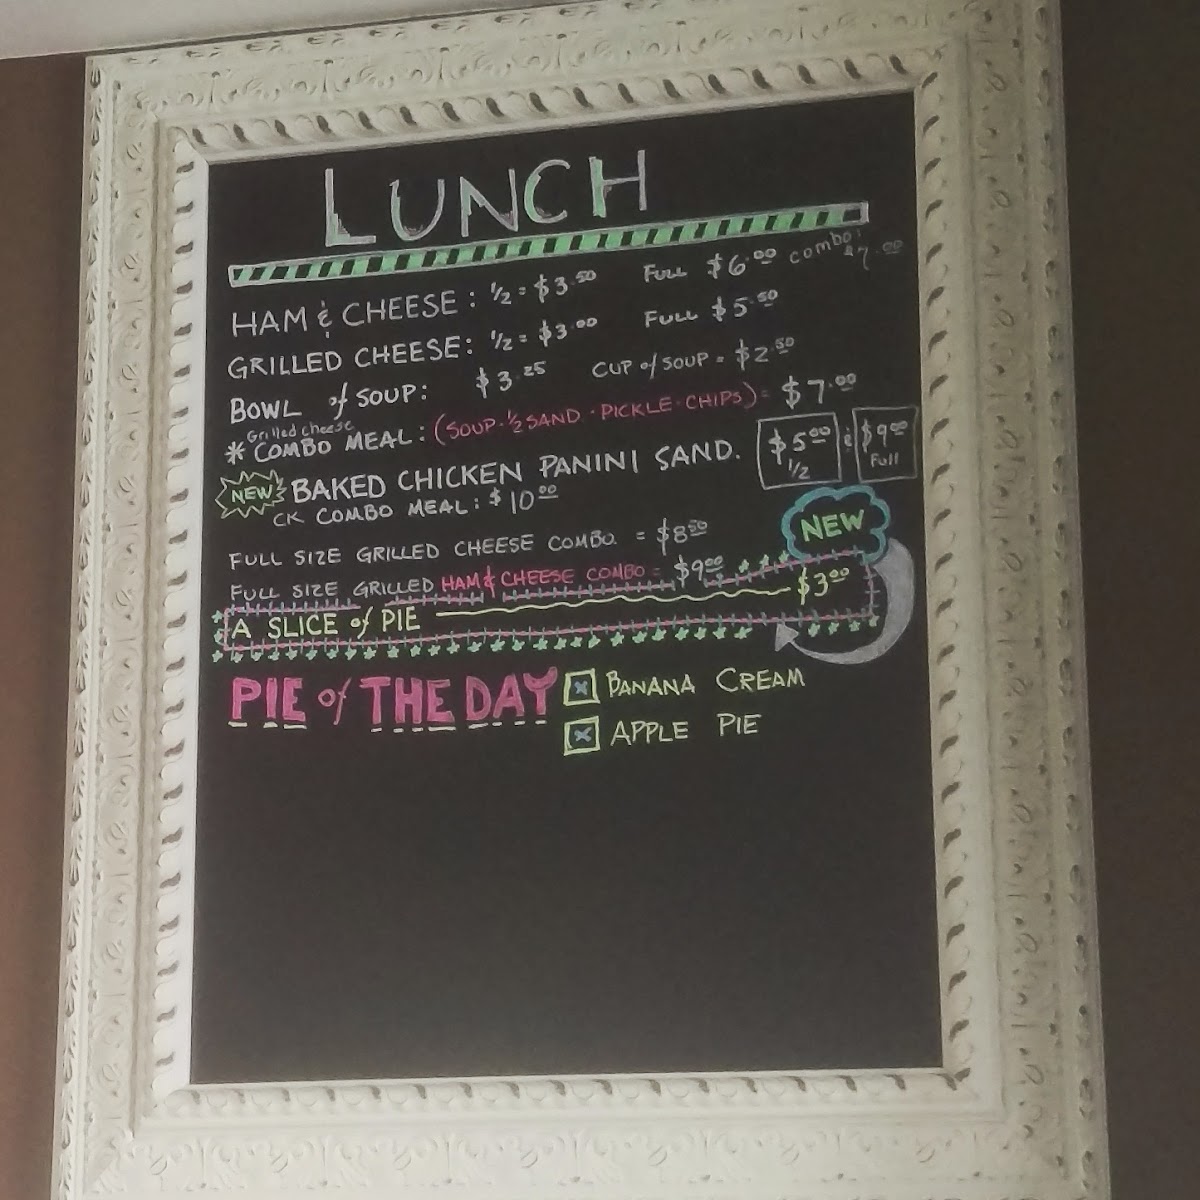 LUNCH
HAM & CHEESE: 1/2 = $3.50 FULL $6.00 combo: $7.00
GRILLED CHEESE: 1/2 = $3.00 FULL $5.50
BOWL of SOUP: $3.25 CUP of SOUP = $2.50
Grilled cheese
* COMBO MEAL: (SOUP · 1/2 SAND · PICKLE · CHIPS) = $7.00
NEW BAKED CHICKEN PANINI SAND. $5.00 1/2 & $9.00 Full
CK COMBO MEAL: $10.00
FULL SIZE GRILLED CHEESE COMBO. = $8.50
NEW
FULL SIZE GRILLED HAM & CHEESE COMBO = $9.00
A SLICE of PIE $3.00
PIE of THE DAY BANANA CREAM
APPLE PIE